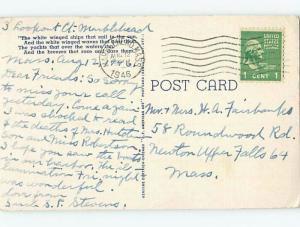 3 Rockport Ct. Marblehead
"The white winged ships that sail to the sea
And the white winged waves that
The yachts that over the waters
And the breezes that over
Mass. Aug. 12, 1946
1946
UNITED STATES POSTAGE
1 CENT 1
Dear Friends: So sorry
to miss your call
yesterday. Come again.
I was shocked to read
of the deaths of Mrs. Hutch
and Miss Robertson.
I hope you saw the boats
in our harbor. The
illumination Fri. night
was wonderful
Love from
S. P. Stevens.
POST CARD
Mr & Mrs. H. A. Fairbanks
58 Roundwood Rd.
Newton Upper Falls 64
Mass.